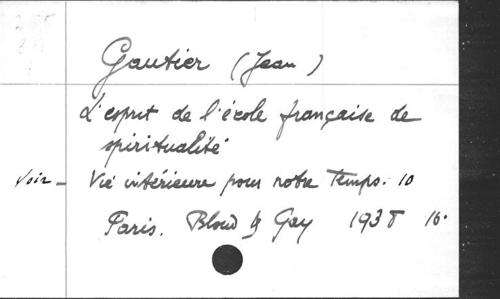 Gautier (Jean)
L'esprit de l'école française de
spiritualité
Voir – Vie intérieure pour notre Temps. 10
Paris. Bloud & Gay 1938 16°